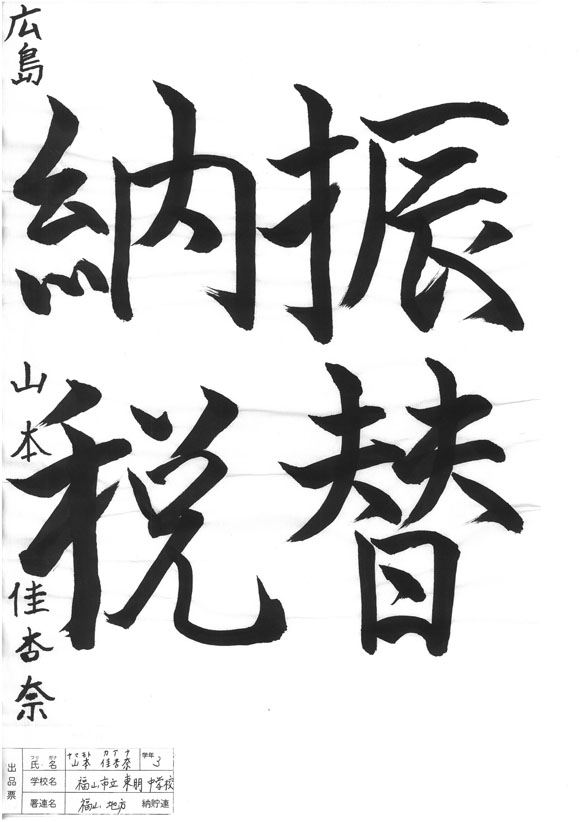 振替
納税
広島
山本 佳杏奈
出品票
フリ ガナ ヤマモト カアナ
氏名 山本 佳杏奈 学年 3
学校名 福山市立東朋中学校
署連名 福山 地方 納貯連